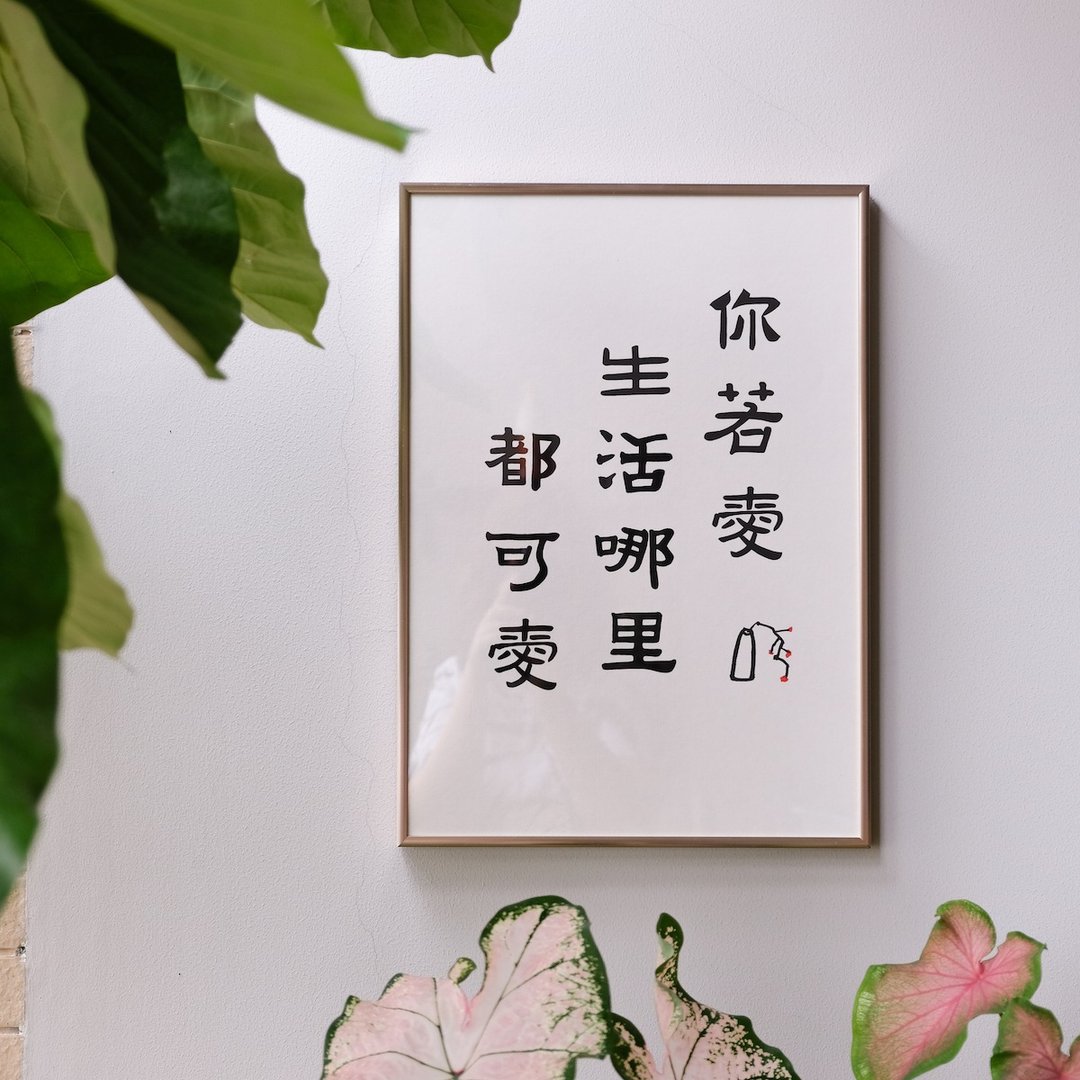 你若愛
生活哪里
都可愛